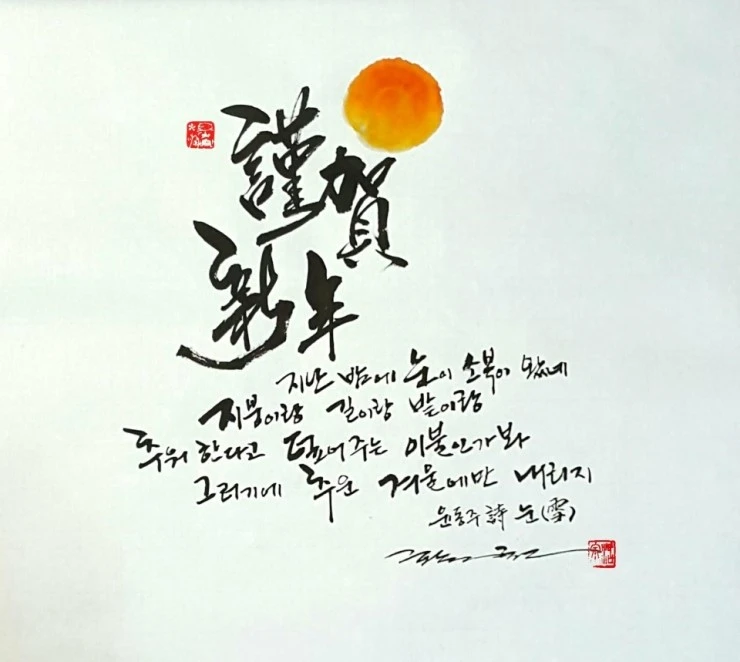 謹賀
新年
지난 밤에 눈이 소복이 왔네
지붕이랑 길이랑 밭이랑
추워 한다고 덮어주는 이불인가봐
그러기에 추운 겨울에만 내리지
윤동주 詩 눈(雪)